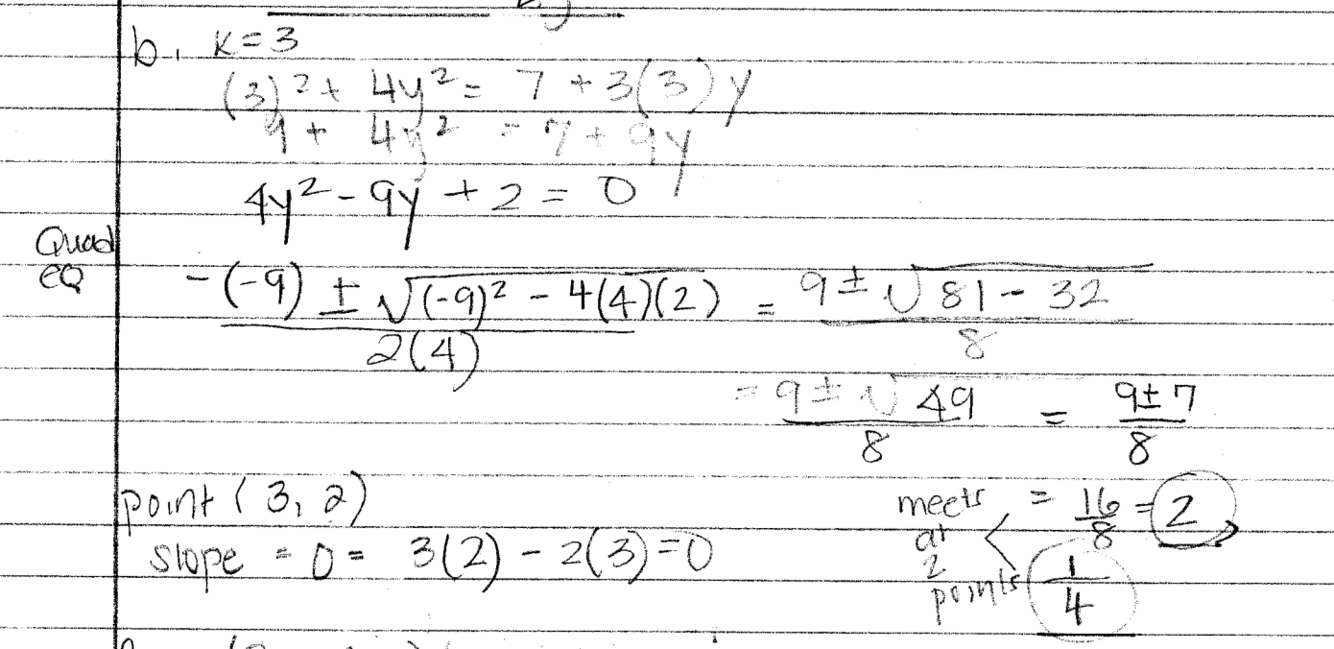 b. K=3
(3)² + 4y² = 7 + 3(3)y
9 + 4y² = 7 + 9y
4y² - 9y + 2 = 0
Quad
EQ
-(-9) ± √(-9)² - 4(4)(2) / 2(4) = 9 ± √81 - 32 / 8
= 9 ± √49 / 8 = 9 ± 7 / 8
point (3, 2)
slope = 0 = 3(2) - 2(3) = 0
meets at 2 points
= 16/8 = 2,
1/4